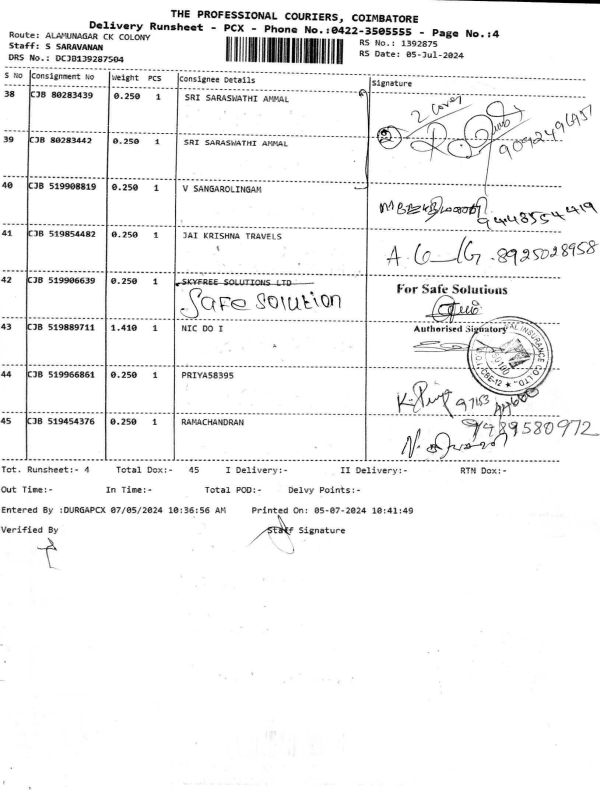 THE PROFESSIONAL COURIERS, COIMBATORE
Delivery Runsheet - PCX - Phone No.:0422-3505555 - Page No.:4
Route: ALAMUNAGAR CK COLONY
RS No.: 1392875
Staff: S SARAVANAN
RS Date: 05-Jul-2024
DRS No.: DCJB139287504
S No Consignment No Weight PCS Consignee Details Signature
38 CJB 80283439 0.250 1 SRI SARASWATHI AMMAL
2 cover
39 CJB 80283442 0.250 1 SRI SARASWATHI AMMAL
40 CJB 519908819 0.250 1 V SANGAROLINGAM
9443554419
41 CJB 519854482 0.250 1 JAI KRISHNA TRAVELS
8925028958
42 CJB 519906639 0.250 1 SKYFREE SOLUTIONS LTD
Safe solution
For Safe Solutions
Authorised Signatory
43 CJB 519889711 1.410 1 NIC DO I
44 CJB 519966861 0.250 1 PRIYA58395
45 CJB 519454376 0.250 1 RAMACHANDRAN
9489580972
Tot. Runsheet:- 4 Total Dox:- 45 I Delivery:- II Delivery:- RTN Dox:-
Out Time:- In Time:- Total POD:- Delvy Points:-
Entered By :DURGAPCX 07/05/2024 10:36:56 AM Printed On: 05-07-2024 10:41:49
Verified By Staff Signature